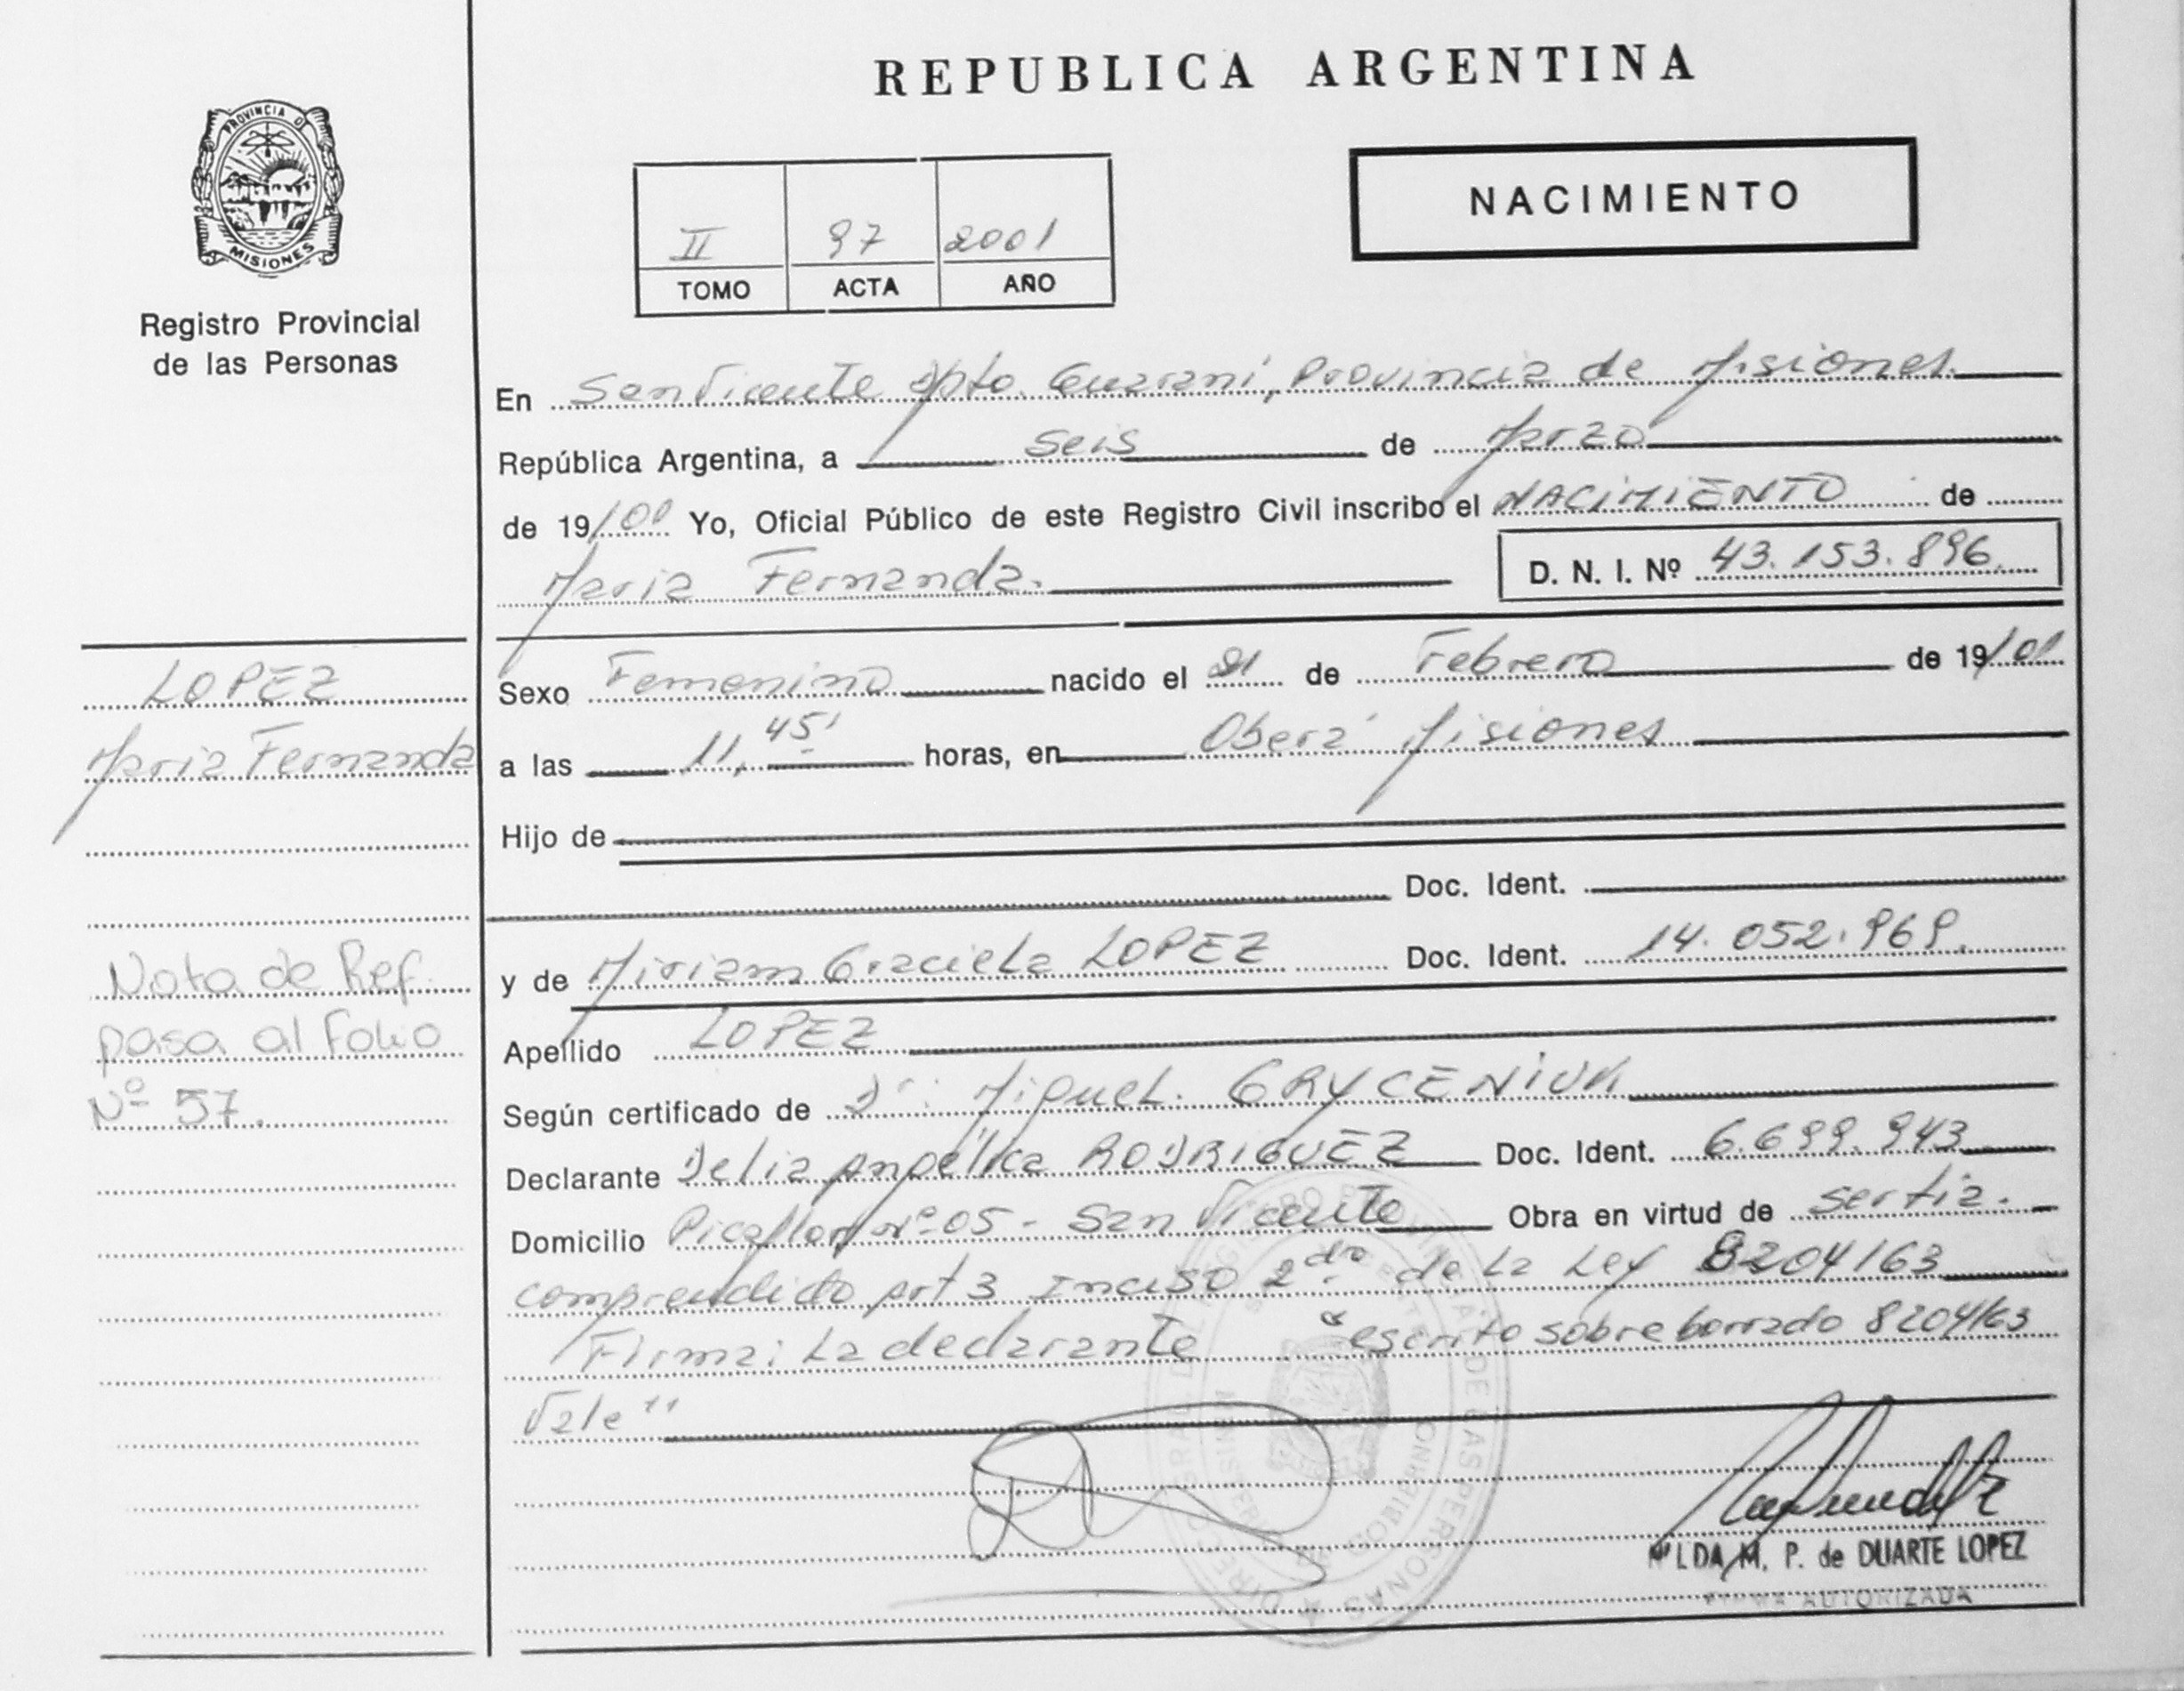 REPUBLICA ARGENTINA
PROVINCIA D
MISIONES
Registro Provincial
de las Personas
II 97 2001
TOMO ACTA AÑO
NACIMIENTO
En San Vicente Dpto. Guarani, Provincia de Misiones.
República Argentina, a seis de Marzo
de 19/.01 Yo, Oficial Público de este Registro Civil inscribo el NACIMIENTO de
Maria Fernanda. D. N. I. Nº 43.153.896.
LOPEZ
Maria Fernanda
Sexo Femenino nacido el 21 de Febrero de 19/.01
a las 11,45' horas, en Oberá Misiones
Hijo de
Doc. Ident.
y de Miriam Graciela LOPEZ Doc. Ident. 14.052.969.
Apellido LOPEZ
Nota de Ref.
pasa al Folio
Nº 57.
Según certificado de Dr. Miguel. GRYCENIUK
Declarante Delia Angélica RODRIGUEZ Doc. Ident. 6.699.943
Domicilio Picaflor Nº 05 - San Vicente Obra en virtud de ser tia.
comprendido Art 3 Inciso 2do. de la Ley 8204/63
Firma: La declarante "escrito sobre borrado 8204/63
Vale"
LDA M. P. de DUARTE LOPEZ
FIRMA AUTORIZADA